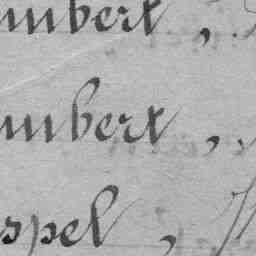 mbert,
mbert,
spel,